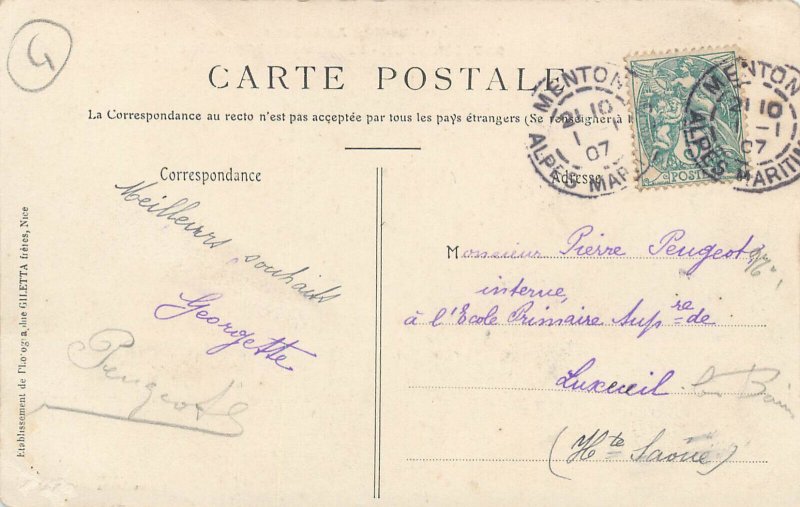 5
CARTE POSTALE
La Correspondance au recto n'est pas acceptée par tous les pays étrangers (Se renseigner à l
Correspondance
Adresse
Meilleurs souhaits
Georgette
Peugeot
Monsieur Pierre Peugeot
interne,
à l'Ecole Primaire Supre de
Luxeuil les Bains
(Hte Saône)
MENTON
21 10
1 -1
07
ALPES MAR
POSTE
MENTON
10
-1
07
ALPES MARITIM
Etablissement de Photographie GILETTA frères, Nice